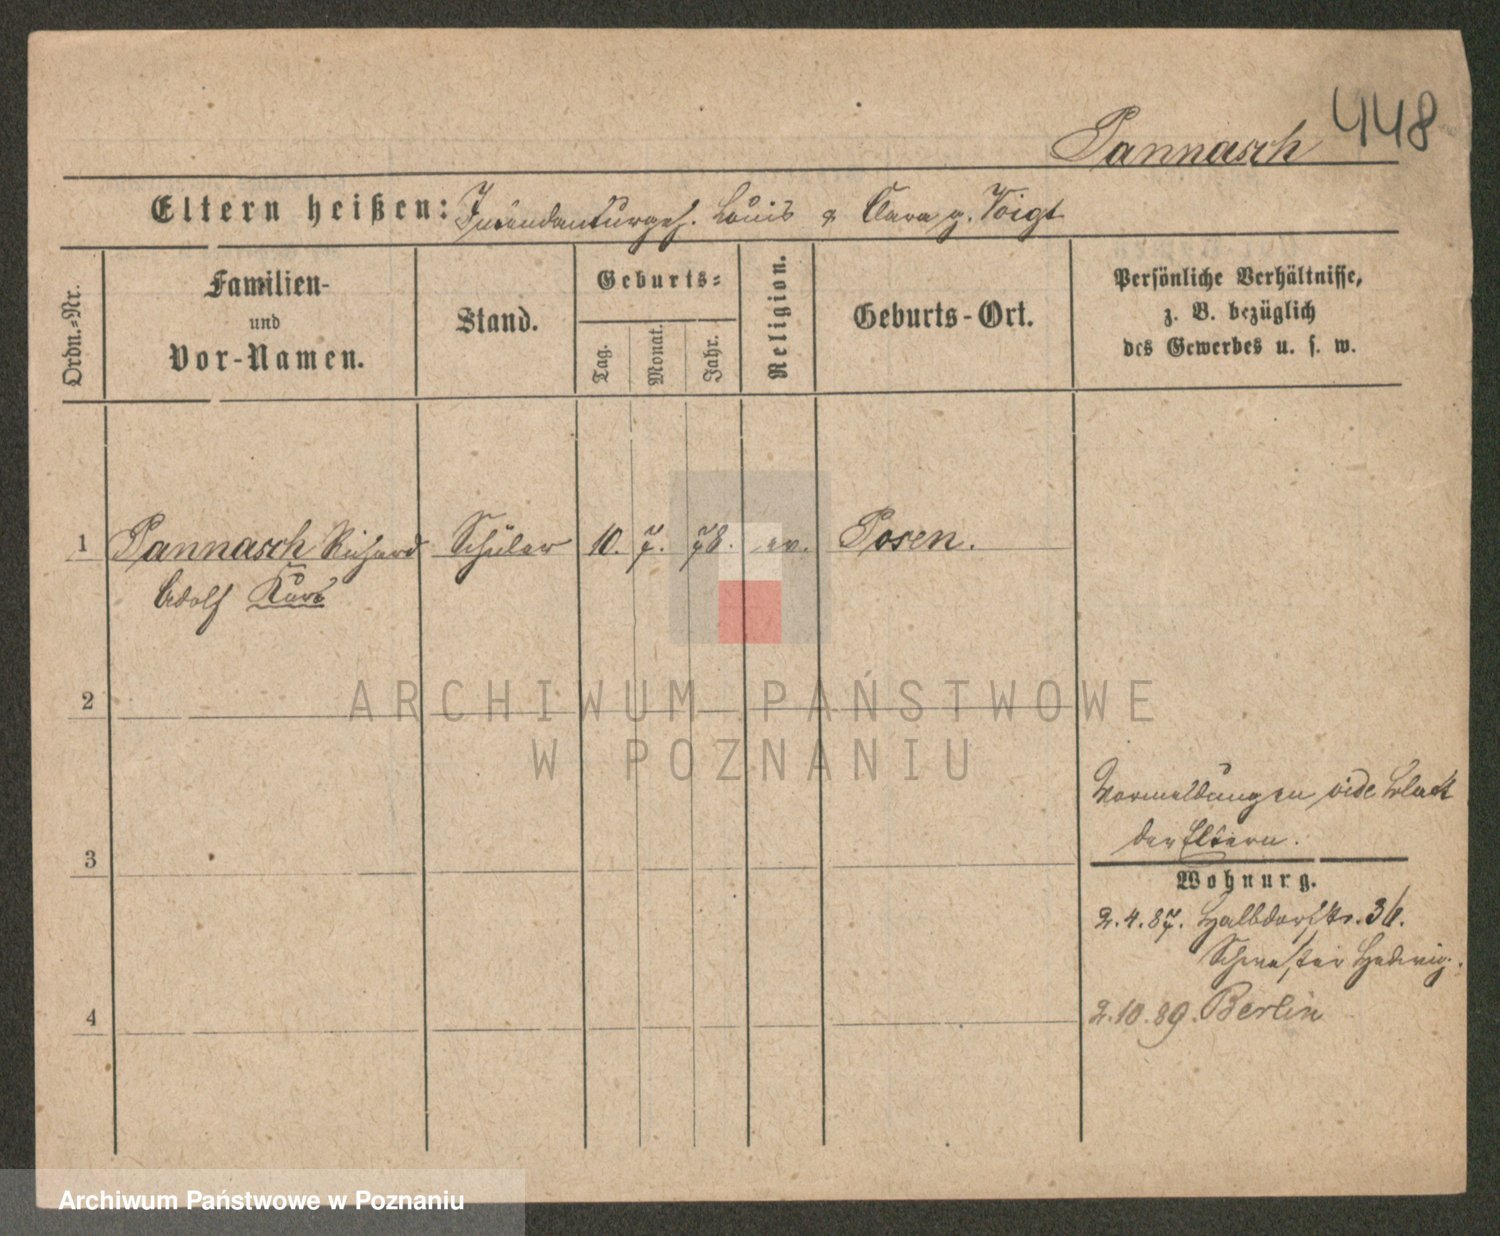 448
Pannasch
Eltern heißen: Intendanturges. Louis & Clara g. Voigt
Ordn.=Nr.
Familien-
und
Vor-Namen.
Stand.
Geburts=
Tag.
Monat.
Jahr.
Religion.
Geburts-Ort.
Persönliche Verhältnisse,
z. B. bezüglich
des Gewerbes u. s. w.
1 Pannasch Richard Schüler 10. 7. 78. ev. Posen.
Adolf Kurt
2
ARCHIWUM PAŃSTWOWE
W POZNANIU
Vormeldungen vide Blatt
der Eltern.
3
Wohnung.
2.4.87. Halbdorfstr. 36.
Schwester Hedwig.
4
2.10.89. Berlin
Archiwum Państwowe w Poznaniu